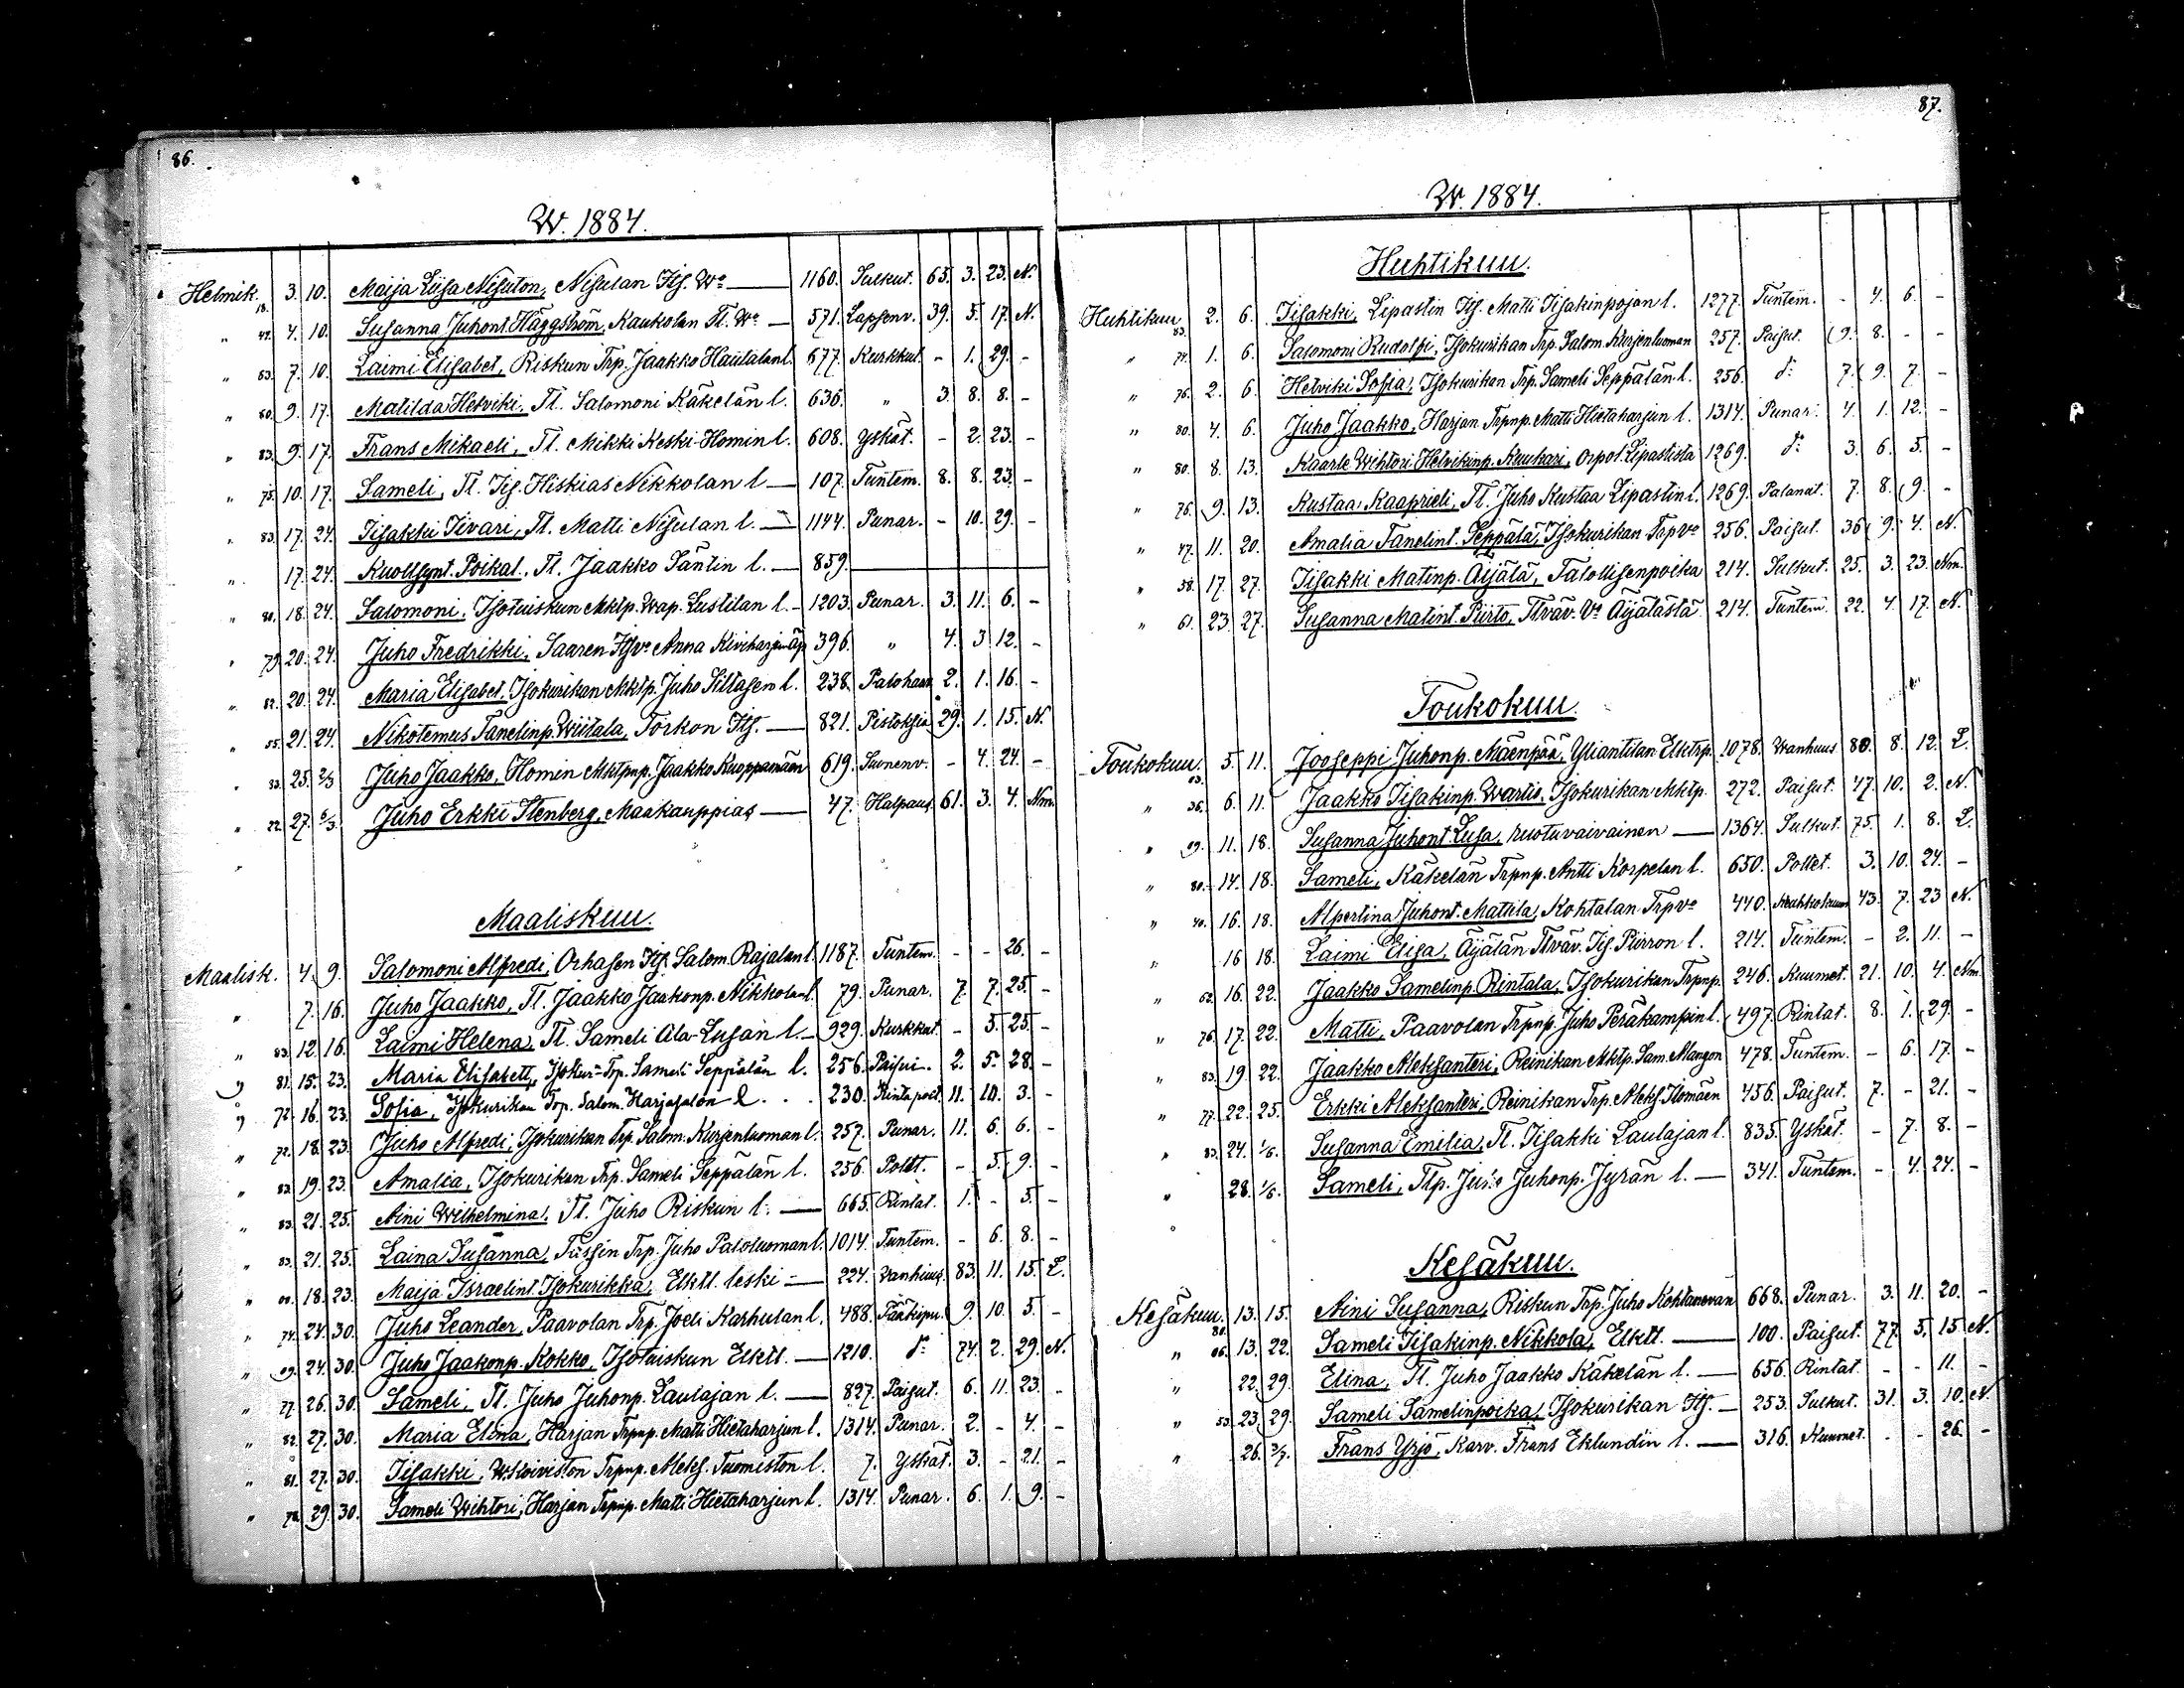 86.
W. 1884.
Helmik. 18. 3. 10. Maija Liisa Nisuton, Nisulan Its. Wo — 1160. Sulkut. 65. 3. 23. N.
" 44. 4. 10. Susanna Juhont. Häggström, Kaukolan Tl. Wo — 571. Lapsenv. 39. 5. 17. N.
" 83. 7. 10. Laimi Elisabet, Riskun Trp. Jaakko Hautalan l. 677. Kurkkut. - 1. 29. -
" 80. 9. 17. Matilda Helviki, Tl. Salomoni Käkelän l. 636. " 3. 8. 8. -
" 83. 9. 17. Frans Mikaeli, Tl. Mikki Keski-Homin l. 608. Yskät. - 2. 23. -
" 75. 10. 17. Sameli, Tl. Its. Hiskias Nikkolan l — 107. Tuntem. 8. 8. 23. -
" 83. 17. 24. Iisakki Iivari, Tl. Matti Nisulan l. — 1144. Punar. - 10. 29. -
" 17. 24. Kuoll.synt. Poikal., Tl. Jaakko Säntin l. — 859.
" 80. 18. 24. Salomoni, Isotuiskun Mktp. Wap. Lustilan l. - 1203. Punar. 3. 11. 6. -
" 79. 20. 24. Juho Fredrikki, Saaren Itsv. Anna Kiviharjun äp. 396. " 4. 3. 12. -
" 82. 20. 24. Maria Elisabet, Isokurikan Mktp. Juho Siltasen l. 238. Palohaav. 2. 1. 16. -
" 55. 21. 24. Nikotemus Tanelinp. Wiitala, Törkön Its. — 821. Pistoksia 29. 1. 15. N.
" 83. 25. 2/3 Juho Jaakko, Homin Mktpnp. Jaakko Kuoppamäen 619. Suonenv. - 4. 24. -
" 22. 27. 6/3. Juho Erkki Stenberg, Maakauppias — 47. Halpaus. 61. 3. 4. Nm.
Maaliskuu.
Maalisk. 4. 9. Salomoni Alfredi, Orhasen Its. Salom. Rajalan l. 1187. Tuntem. - - 26. -
" 7. 16. Juho Jaakko, Tl. Jaakko Jaakonp. Nikkolan l. 79. Punar. 7. 7. 25. -
" 83. 12. 16. Laimi Helena, Tl. Sameli Ala-Lusan l. - 929. Kurkkut. - 5. 25. -
" 81. 15. 23. Maria Elisabett, Isokur:n Trp. Sameli Seppälän l. 256. Paisu. 2. 5. 28. -
" 72. 16. 23. Sofia, Isokurikan Trp. Salom. Harjasalon l. . . 230. Rintapoet. 11. 10. 3. -
" 72. 18. 23. Juho Alfredi, Isokurikan Trp. Salom. Kurjenluoman l. 257. Punar. 11. 6. 6. -
" 83. 19. 23. Amalia, Isokurikan Trp. Sameli Seppälän l. 256. Poltt. - 5. 9. -
" 83. 21. 25. Aini Wilhelmina, Tl. Juho Riskun l. — 665. Rintat. 1. - 5. -
" 83. 21. 25. Laina Susanna, Tussin Trp. Juho Paloluoman l. 1014. Tuntem. - 6. 8. -
" 00. 18. 23. Maija Israelint. Isokurikka, Elktl. leski — 224. Vanhuus. 83. 11. 15. L.
" 74. 24. 30. Juho Leander, Paavolan Trp. Joeli Karhulan l. 488. 9. 10. 5. -
" 09. 24. 30. Juho Jaakonp. Kokko, Isotuiskun Elktl. — 1210. do 74. 2. 29. N.
" 77. 26. 30. Sameli, Tl. Juho Juhonp. Laulajan l. — 827. Paisut. 6. 11. 23. -
" 82. 27. 30. Maria Elina, Harjan Trpnp. Matti Hietaharjun l. 1314. Punar. 2. - 4. -
" 81. 27. 30. Iisakki, W.Koiviston Trpnp. Aleks. Tuomiston l. 7. Yskät. 3. - 21. -
" 78. 29. 30. Sameli Wihtori, Harjan Trpnp. Matti Hietaharjun l. 1314. Punar. 6. 1. 9. -
87.
W. 1884.
Huhtikuu.
Huhtikuu. 83. 2. 6. Iisakki, Lipastin Its. Matti Iisakinpojan l. 1277. Tuntem. - 4. 6. -
" 74. 1. 6. Salomoni Rudolfi, Isokurikan Trp. Salom. Kurjenluoman 257. Paisut. 9. 8. - -
" 76. 2. 6. Helviki Sofia, Isokurikan Trp. Sameli Seppälän l. 256. do 7. 9. 7. -
" 80. 4. 6. Juho Jaakko, Harjan Trpnp. Matti Hietaharjun l. 1314. Punar. 4. 1. 12. -
" 80. 8. 13. Kaarle Wihtori Helvikinp. Ruuhari, Orpol. Lipastista 1269. do 3. 6. 5. -
" 76. 9. 13. Kustaa Kaaprieli, Tl. Juho Kustaa Lipastin l. 1269. Palanut. 7. 8. 9. -
" 47. 11. 20. Amalia Tanelint. Seppälä, Isokurikan Trpvo 256. Paisut. 36. 9. 4. N.
" 58. 17. 27. Iisakki Matinp. Äijälä, Talollisenpoika 214. Sulkut. 25. 3. 23. Nm.
" 61. 23. 27. Susanna Matint. Piirto, Tlväv. Vo Äijälästä 214. Tuntem. 22. 4. 17. N.
Toukokuu.
Toukokuu. 03. 5. 11. Jooseppi Juhonp. Mäenpää, Yliantilan Elktrp. 1078. Wanhuus 80. 8. 12. L.
" 36. 6. 11. Jaakko Iisakinp. Wartio, Isokurikan Mktp. 272. Paisut. 47. 10. 2. N.
" 09. 11. 18. Susanna Juhont. Lusa, ruotuvaivainen — 1364. Sulkut. 75. 1. 8. L.
" 80. 14. 18. Sameli, Käkelän Trpnp. Antti Korpelan l. 650. Poltet. 3. 10. 24. -
" 40. 16. 18. Alpertina Juhont. Mattila, Kohtalan Trpvo 440. Keuhkokuum. 43. 7. 23 N.
" 16 18. Laimi Elisa, Äijälän Tlväv. Iis. Piirron l. 214. Tuntem. - 2. 11. -
" 62. 16. 22. Jaakko Samelinp. Rintala, Isokurikan Trpnp. 246. Kuumet. 21. 10. 4. Nm.
" 76. 17. 22. Matti, Paavolan Trpnp. Juho Peräkampin l. 497. Rintat. 8. 1. 29. -
" 83. 19 22. Jaakko Aleksanteri, Reinikan Mktp. Sam. Mangon 478. Tuntem. - 6. 17. -
" 77. 22. 25. Erkki Aleksanteri, Reinikan Trp. Aleks. Ilomäen 456. Paisut. 7. - 21. -
" 83. 24. 1/6. Susanna Emilia, Tl. Iisakki Laulajan l. 835. Yskät. - 7. 8. -
" 28. 1/6. Sameli, Tlp. Juho Juhonp. Jyrän l. — 341. Tuntem. - 4. 24. -
Kesäkuu.
Kesäkuu. 80. 13. 15. Aini Susanna, Riskun Trp. Juho Kohtanevan 668. Punar. 3. 11. 20. -
" 06. 13. 22. Sameli Iisakinp. Nikkola, Elktl. — 100. Paisut. 77. 5. 15. N.
" 22. 29. Elina, Tl. Juho Jaakko Käkelän l. — 656. Rintat. - - 11. -
" 53. 23. 29. Sameli Samelinpoika, Isokurikan Its. — 253. Sulkut. 31. 3. 10. N.
" 26. 3/7. Frans Yrjö, Karv. Frans Eklundin l. — 316. Kuumet. - - 26. -